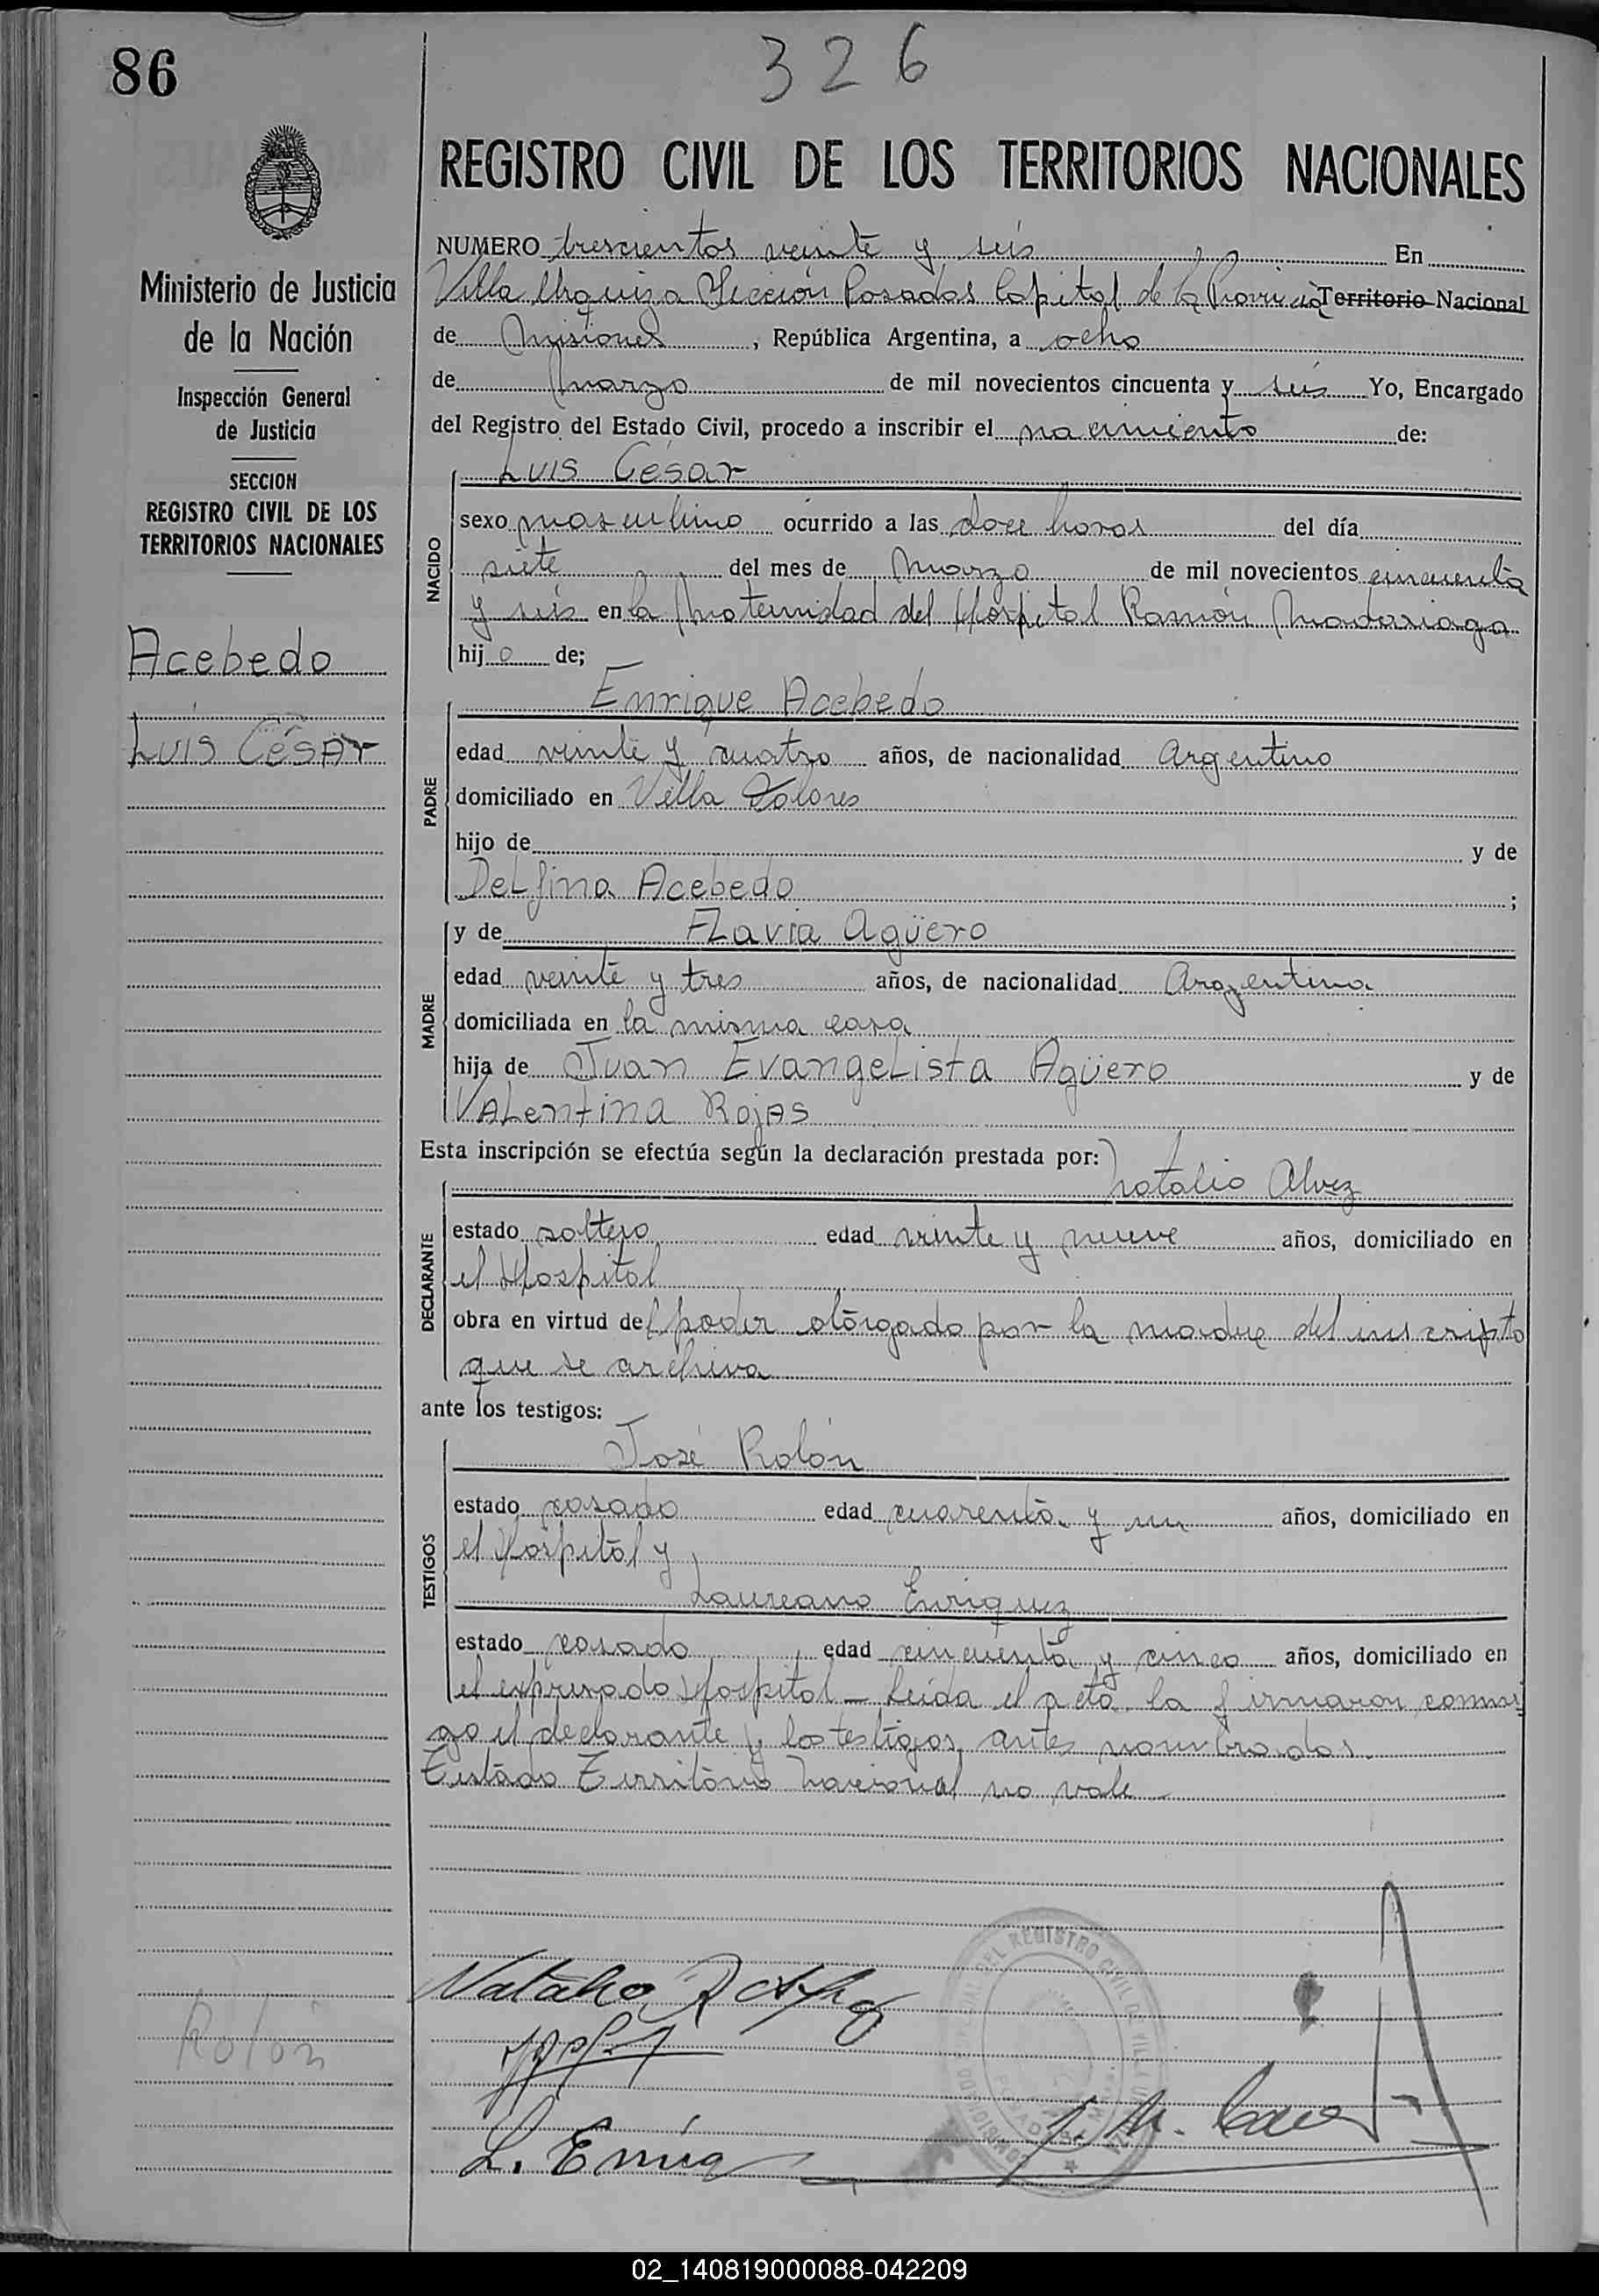 86
326
REGISTRO CIVIL DE LOS TERRITORIOS NACIONALES
Ministerio de Justicia
de la Nación
Inspección General
de Justicia
SECCION
REGISTRO CIVIL DE LOS
TERRITORIOS NACIONALES
Acebedo
Luis César
Rolón
NUMERO trescientos veinte y seis En
Villa Urquiza Sección Posadas Capital de la Provincia Territorio Nacional
de Misiones, República Argentina, a ocho
de marzo de mil novecientos cincuenta y seis Yo, Encargado
del Registro del Estado Civil, procedo a inscribir el nacimiento de:
NACIDO
Luis César
sexo masculino ocurrido a las doce horas del día
siete del mes de Marzo de mil novecientos cincuenta
y seis en la Maternidad del Hospital Ramón Madariaga
hijo de;
PADRE
Enrique Acebedo
edad veinte y cuatro años, de nacionalidad Argentino
domiciliado en Villa Dolores
hijo de y de
Delfina Acebedo ;
MADRE
y de Flavia Agüero
edad veinte y tres años, de nacionalidad Argentina
domiciliada en la misma casa
hija de Juan Evangelista Agüero y de
Valentina Rojas
Esta inscripción se efectúa según la declaración prestada por:
DECLARANTE
Natalio Alvez
estado soltero edad veinte y nueve años, domiciliado en
el Hospital
obra en virtud del poder otorgado por la madre del inscripto
que se archiva
ante los testigos:
TESTIGOS
José Rolón
estado casado edad cuarenta y un años, domiciliado en
el Hospital y
Laureano Enriquez
estado casado edad cincuenta y cinco años, domiciliado en
el expresado Hospital – Leída el acta la firmaron conmi
go el declarante y los testigos antes nombrados.
Testado Territorio Nacional no vale
DEL REGISTRO CIVIL DE VILLA
L. Enriq
02_140819000088-042209